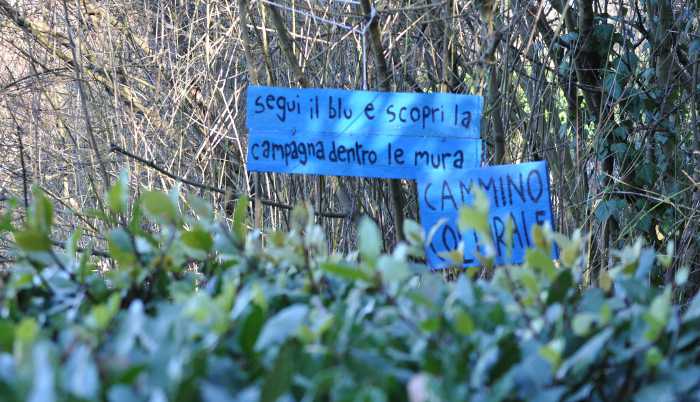 segui il blu e scopri la
campagna dentro le mura
CAMMINO